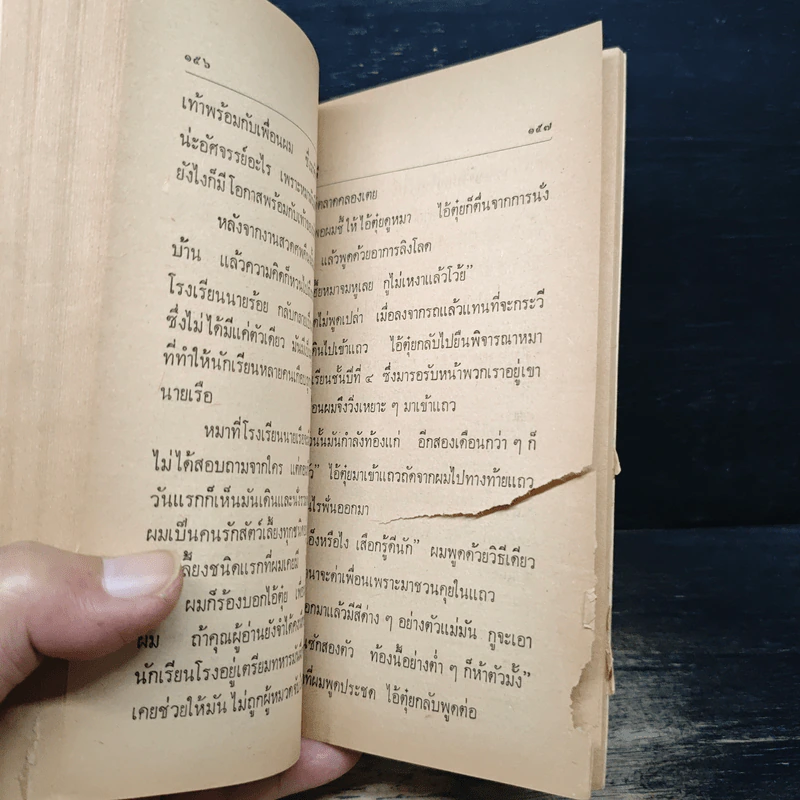 ๑๕๖
เท้าพร้อมกับเพื่อนผม
น่ะอัศจรรย์อะไร เพราะหมา
ยังไงก็มีโอกาสพร้อมกับเท้า
หลังจากงานสวดศพ
บ้าน แล้วความคิดก็หวน
โรงเรียนนายร้อย กลับกลาย
ซึ่งไม่ได้มีแค่ตัวเดียว มัน
ที่ทำให้นักเรียนหลายคนเกือบ
นายเรือ
หมาที่โรงเรียนนายเรือ
ไม่ได้สอบถามจากใคร แต่
วันแรกก็เห็นมันเดินและ
ผมเป็นคนรักสัตว์เลี้ยงทุกชนิด
เลี้ยงชนิดแรกที่ผมเคยมี
ผมก็ร้องบอกไอ้ตุ๋ย
ผม ถ้าคุณผู้อ่านยังจำได้
นักเรียนโรงอยู่เตรียมทหาร
เคยช่วยให้มัน ไม่ถูกผู้หมวด
๑๕๗
ตลาดคลองเตย
พอผมชี้ให้ไอ้ตุ๋ยดูหมา ไอ้ตุ๋ยก็ตื่นจากการนั่ง
แล้วพูดด้วยอาการลิงโลด
หมาจมหูเลย กูไม่เหงาแล้วโว้ย”
ไม่พูดเปล่า เมื่อลงจากรถแล้วแทนที่จะกระวี
เดินไปเข้าแถว ไอ้ตุ๋ยกลับไปยืนพิจารณาหมา
เรียนชั้นปีที่ ๔ ซึ่งมารอรับหน้าพวกเราอยู่เขา
ผมจึงวิ่งเหยาะ ๆ มาเข้าแถว
นั้นมันกำลังท้องแก่ อีกสองเดือนกว่า ๆ ก็
ไอ้ตุ๋ยมาเข้าแถวถัดจากผมไปทางท้ายแถว
ไรพั่นออกมา
หรือไง เสือกรู้ดีนัก” ผมพูดด้วยวิธีเดียว
จะด่าเพื่อนเพราะมาชวนคุยในแถว
ออกมาแล้วมีสีต่าง ๆ อย่างตัวแม่มัน กูจะเอา
ซักสองตัว ท้องนี้อย่างต่ำ ๆ ก็ห้าตัวมั้ง”
ที่ผมพูดประชด ไอ้ตุ๋ยกลับพูดต่อ